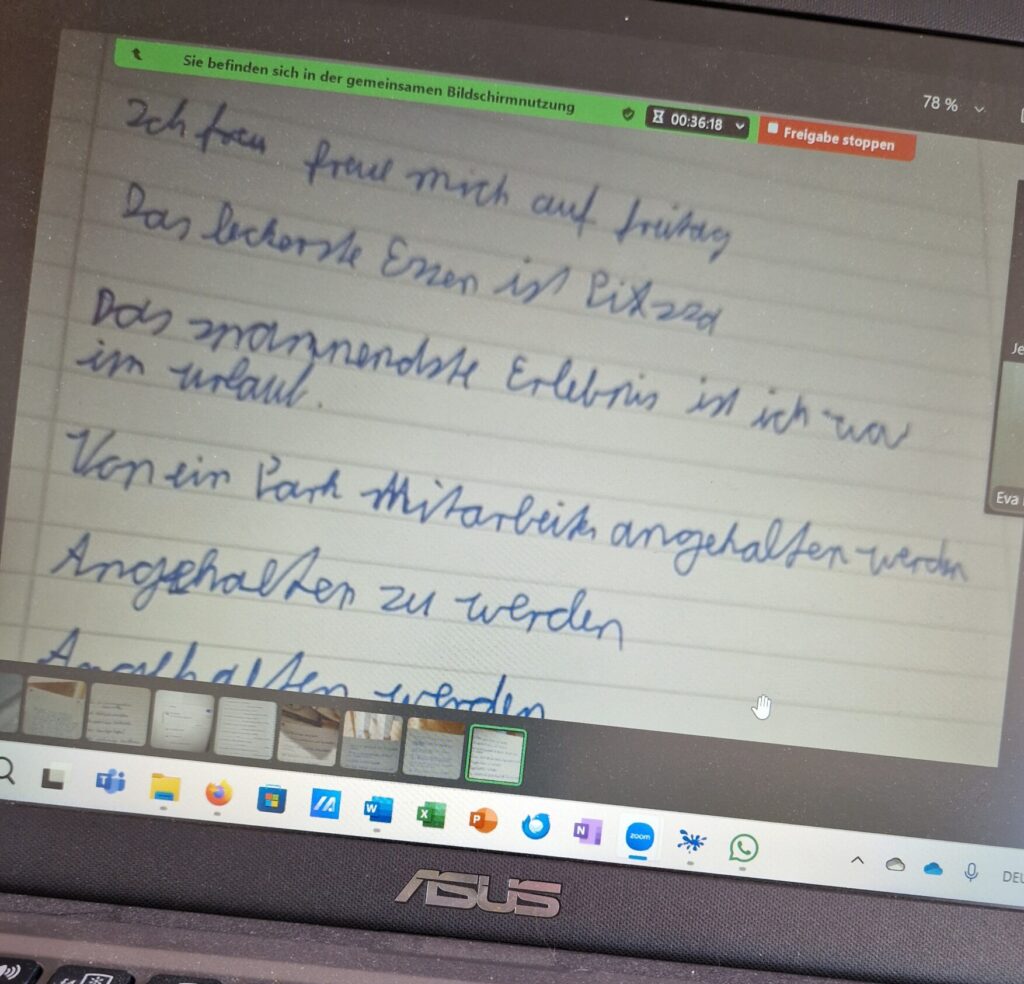 Sie befinden sich in der gemeinsamen Bildschirmnutzung
00:36:18
Freigabe stoppen
78 %
Ich freu freue mich auf freitag
Das leckerste Essen ist Pitzza
Das spannendste Erlebnis ist ich war
im urlaub.
Von ein Park Mitarbeiter angehalten werden
Angehalten zu werden
Angehalten werden
Je
Eva
zoom
DEU
ASUS